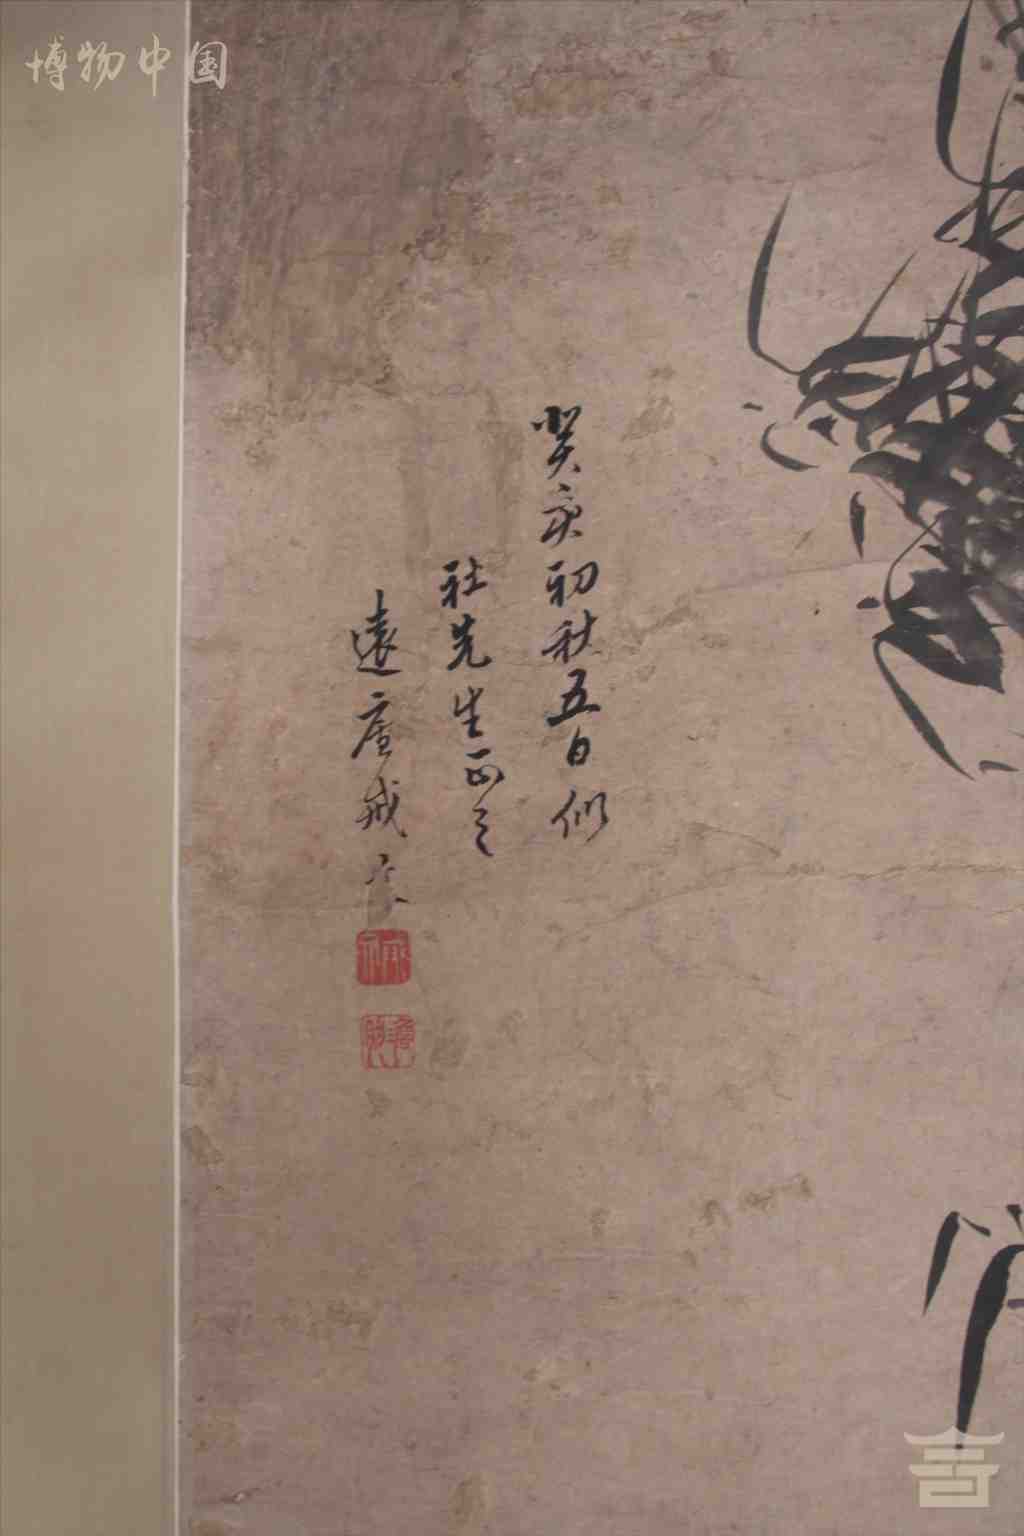 博物中国
癸亥初秋五日似
社先生正之
遠庵戒